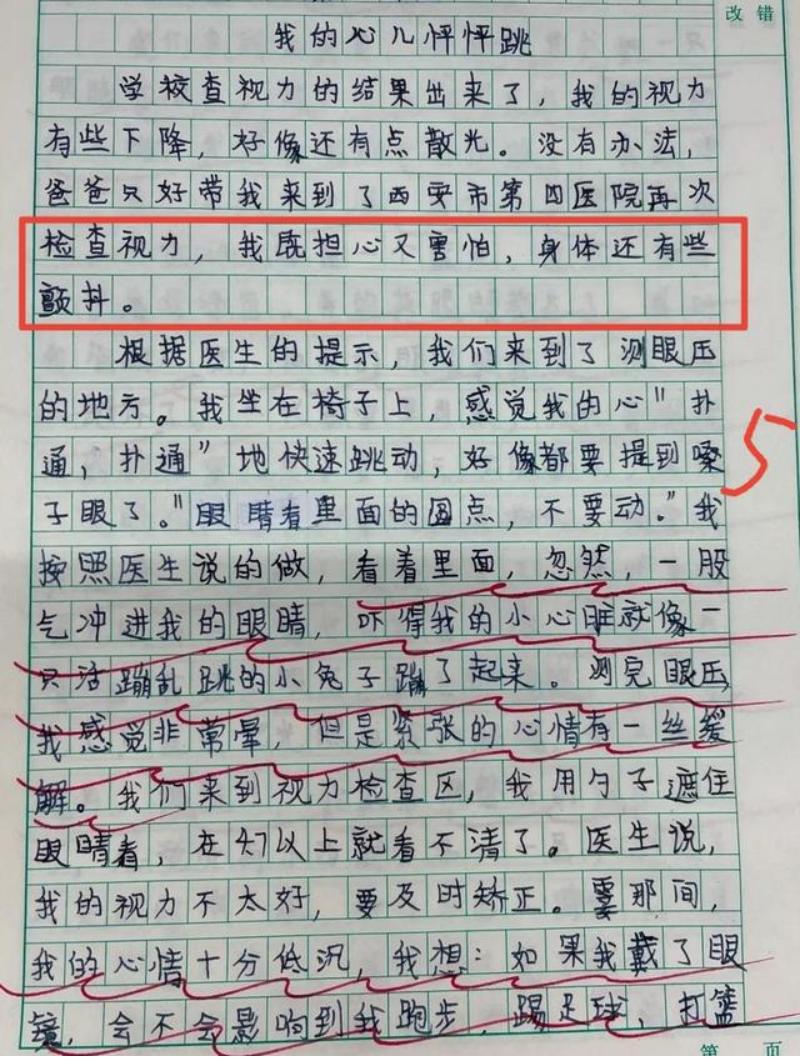 改错
我的心儿怦怦跳
学校查视力的结果出来了，我的视力
有些下降，好像还有点散光。没有办法，
爸爸只好带我来到了西安市第四医院再次
检查视力，我既担心又害怕，身体还有些
颤抖。
根据医生的提示，我们来到了测眼压
的地方。我坐在椅子上，感觉我的心"扑
通，扑通"地快速跳动，好像都要提到嗓
子眼了。"眼睛看里面的圆点，不要动。"我
按照医生说的做，看着里面，忽然，一股
气冲进我的眼睛，吓得我的小心脏就像一
只活蹦乱跳的小兔子蹦了起来。测完眼压，
我感觉非常晕，但是紧张的心情有一丝缓
解。我们来到视力检查区，我用勺子遮住
眼睛看，在4.7以上就看不清了。医生说，
我的视力不太好，要及时矫正。霎那间，
我的心情十分低沉，我想：如果我戴了眼
镜，会不会影响到我跑步，踢足球，打篮
5
第 页